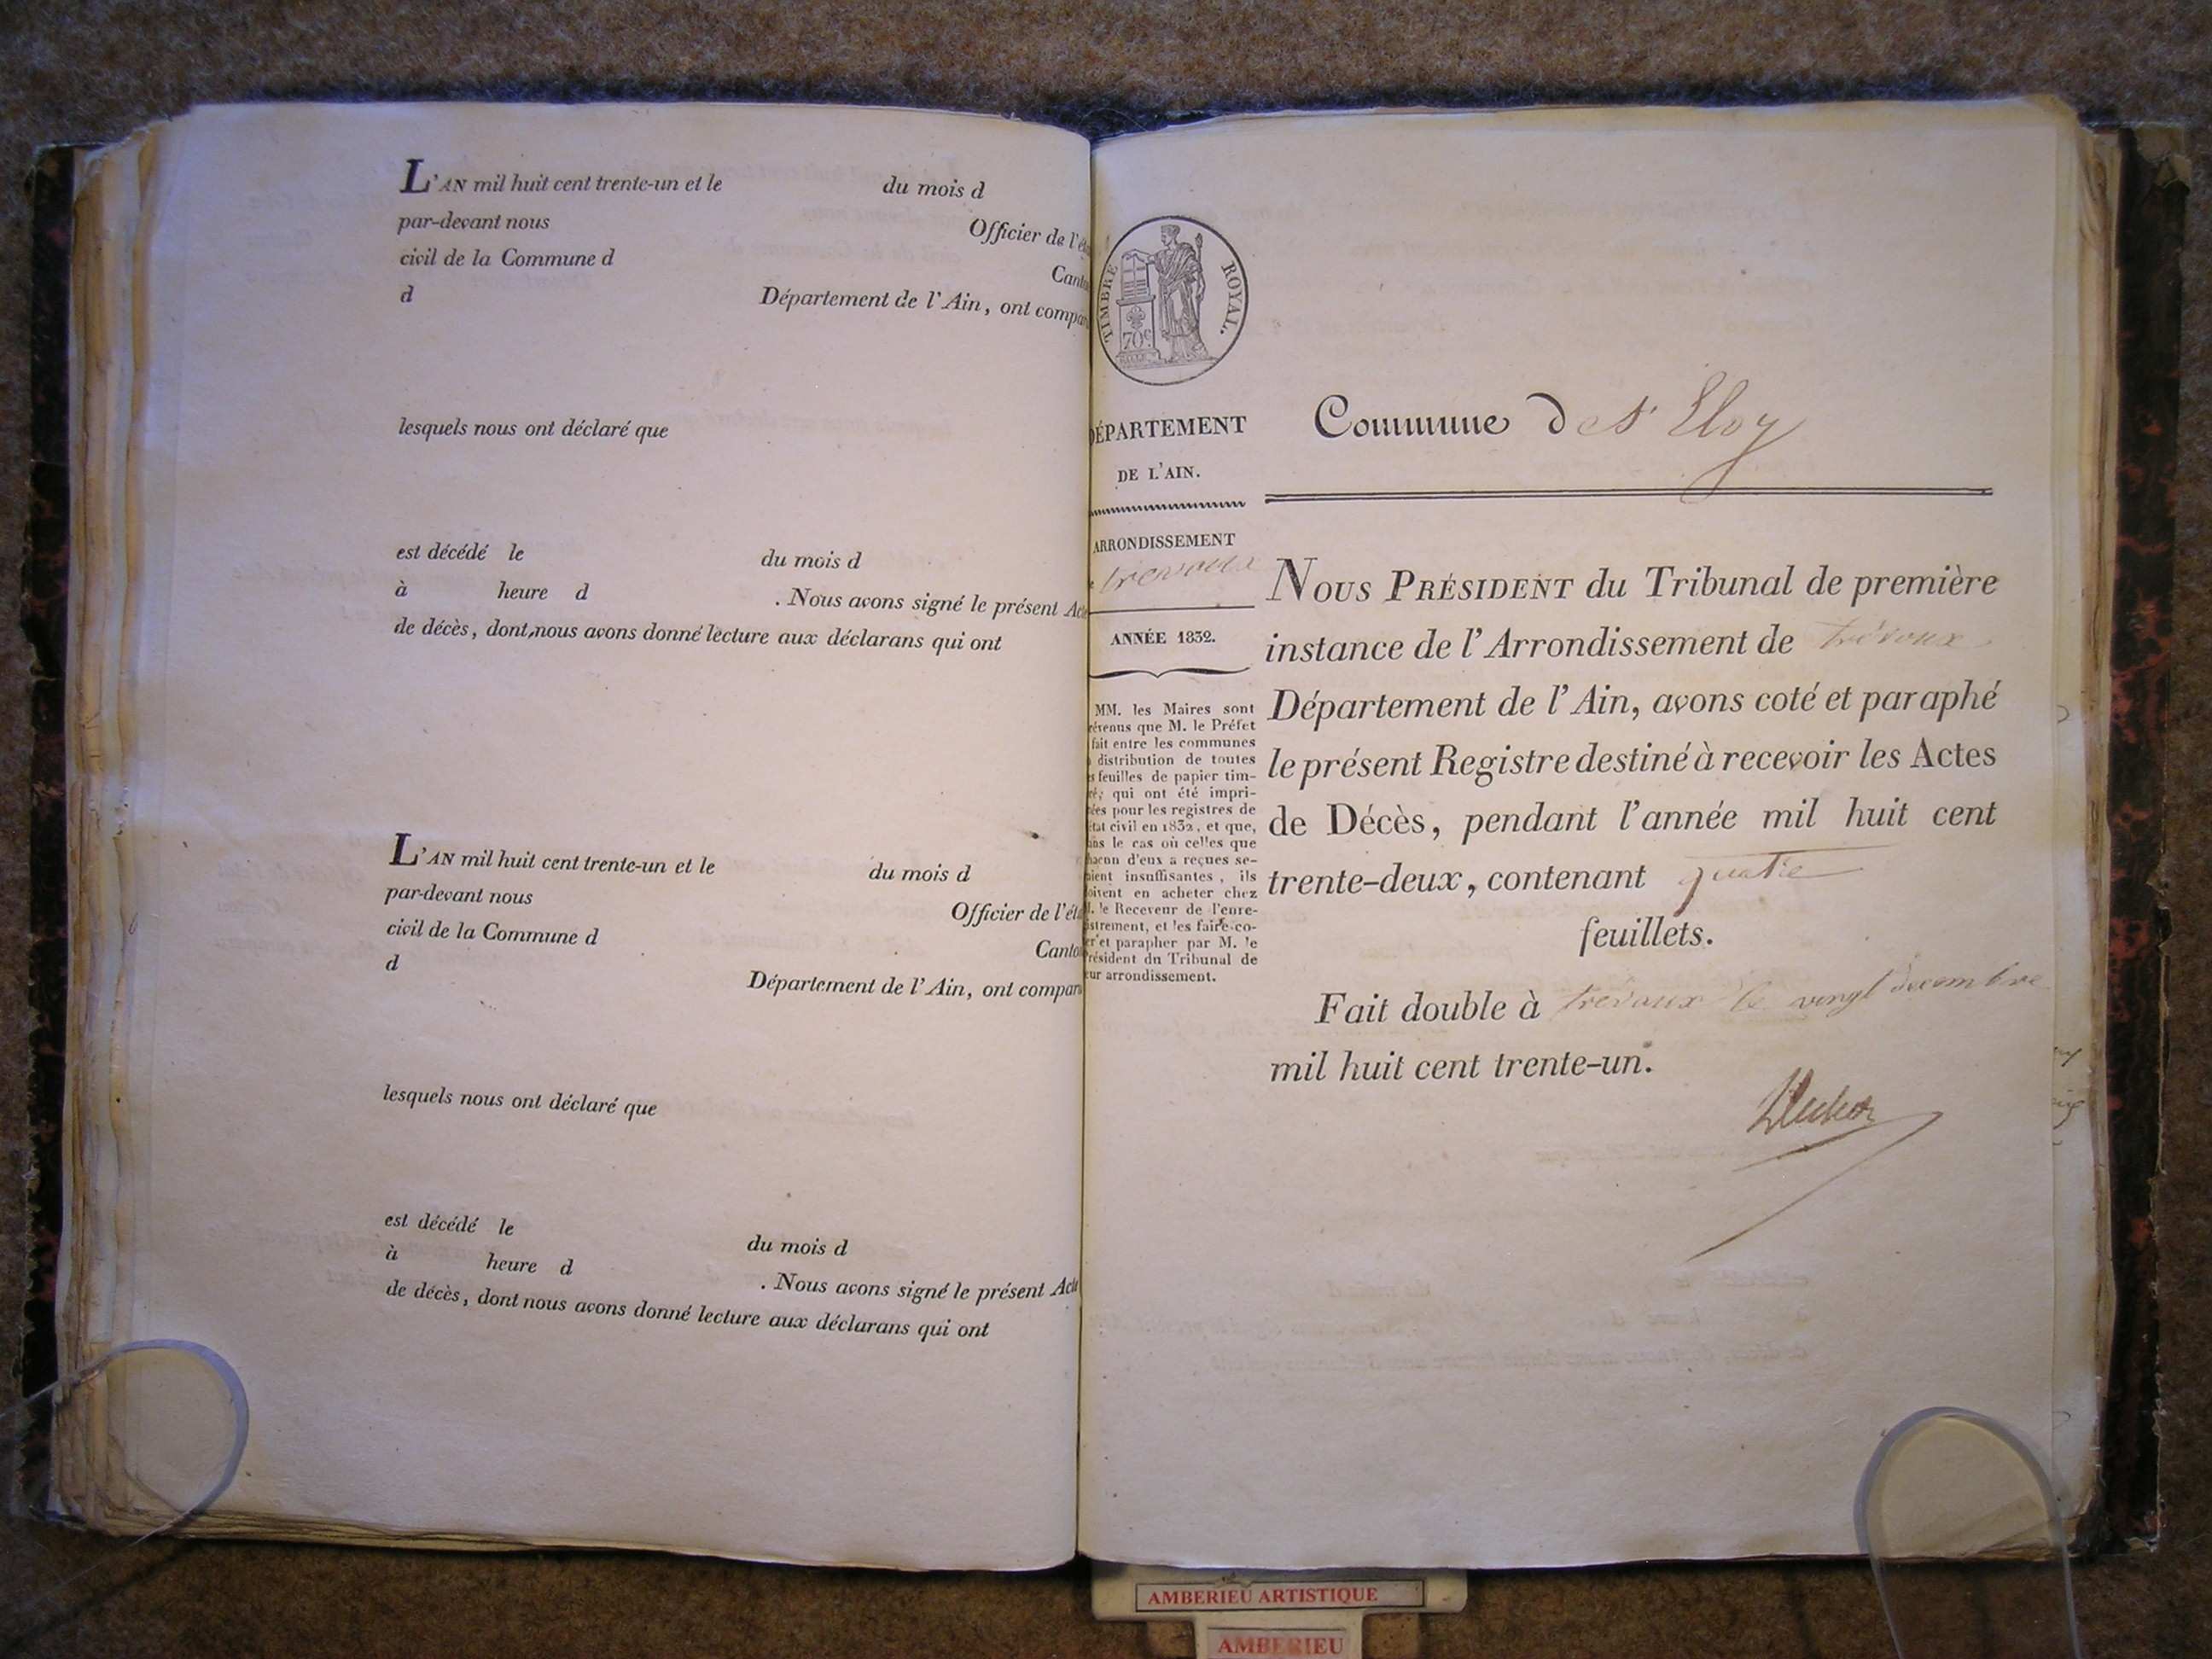 L'AN mil huit cent trente-un et le du mois d
par-devant nous Officier de l'é
civil de la Commune d Cant
d Département de l'Ain, ont compar
lesquels nous ont déclaré que
est décédé le du mois d
à heure d . Nous avons signé le présent Act
de décès, dont nous avons donné lecture aux déclarans qui ont
L'AN mil huit cent trente-un et le du mois d
par-devant nous Officier de l'ét
civil de la Commune d Canto
d Département de l'Ain, ont compar
lesquels nous ont déclaré que
est décédé le du mois d
à heure d . Nous avons signé le présent Acte
de décès, dont nous avons donné lecture aux déclarans qui ont
TIMBRE ROYAL.
70c
DÉPARTEMENT
DE L'AIN.
ARRONDISSEMENT
trevoux
ANNÉE 1832.
MM. les Maires sont
révenus que M. le Préfet
fait entre les communes
distribution de toutes
s feuilles de papier tim-
ré, qui ont été impri-
ées pour les registres de
tat civil en 1832, et que,
ans le cas où celles que
hacun d'eux a reçues se-
aient insuffisantes, ils
oivent en acheter chez
M. le Receveur de l'enre-
istrement, et les faire co-
er et parapher par M. le
résident du Tribunal de
eur arrondissement.
Commune de St Eloy
NOUS PRÉSIDENT du Tribunal de première
instance de l'Arrondissement de trévoux
Département de l'Ain, avons coté et paraphé
le présent Registre destiné à recevoir les Actes
de Décès, pendant l'année mil huit cent
trente-deux, contenant quatre
feuillets.
Fait double à trévoux le vingt decembre
mil huit cent trente-un.
AMBERIEU ARTISTIQUE
AMBERIEU